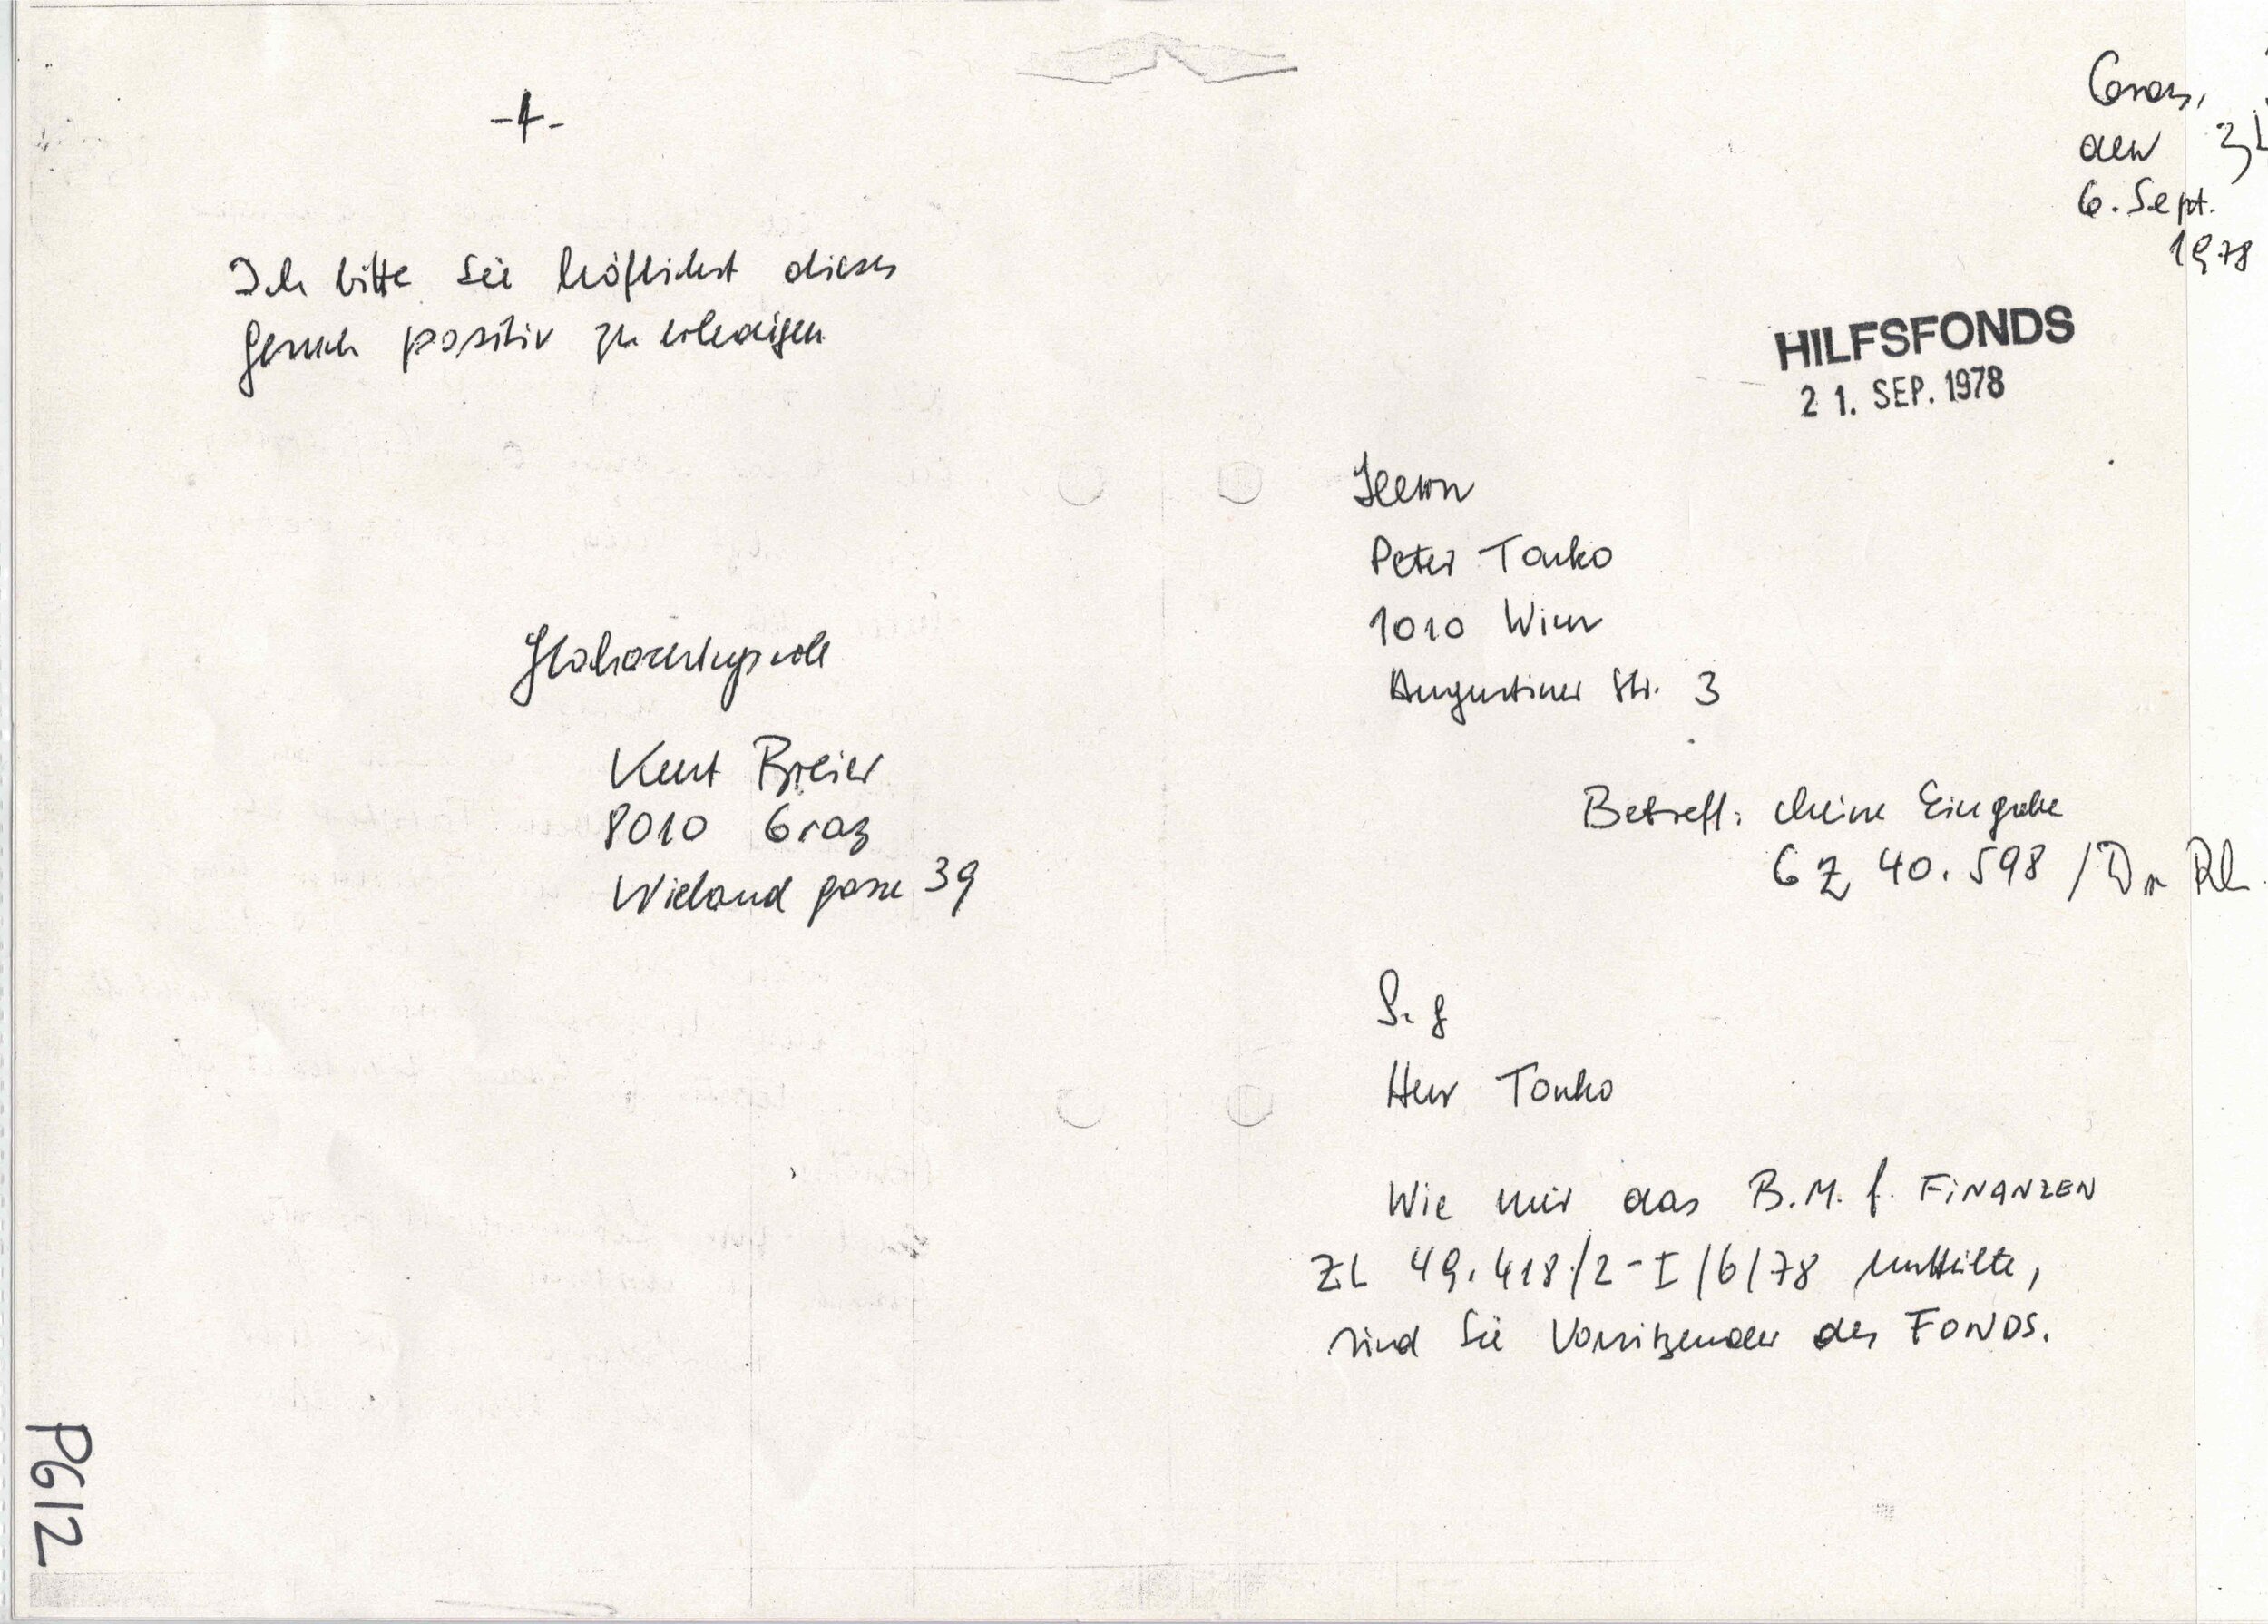 -4-
Ich bitte Sie höflichst dieses
Gesuch positiv zu erledigen
Hochachtungsvoll
Kurt Breier
8010 Graz
Wielandgasse 39
P612
Graz,
den
6. Sept.
1978
HILFSFONDS
21. SEP. 1978
Herrn
Peter Tonko
1010 Wien
Augustiner Str. 3
Betreff: Meine Eingabe
GZ 40.598 / Dr
S. g
Herr Tonko
Wie mir das B.M. f. FINANZEN
ZL 49.418/2-I/6/78 mitteilte,
sind Sie Vorsitzender des FONDS.